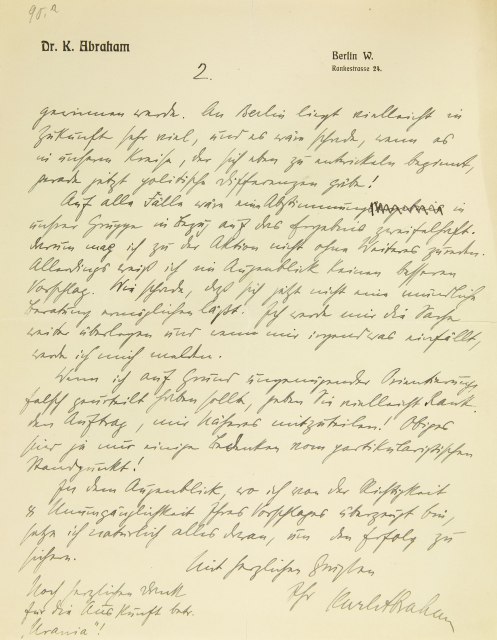 90.2
Dr. K. Abraham
Berlin W.
Rankestrasse 24.
2.
gewinnen werde. An Berlin liegt vielleicht in
Zukunft sehr viel, und es wäre schade, wenn es
in unserem Kreise, der sich eben zu entwickeln beginnt,
gerade jetzt politische Differenzen gäbe!
Auf alle Fälle wäre eine Abstimmung in
unsrer Gruppe in Bezug auf das Ergebnis zweifelhaft.
Darum mag ich zu der Aktion nicht ohne Weiteres zureden.
Allerdings weiß ich im Augenblick keinen besseren
Vorschlag. Wie schade, daß sich jetzt nicht eine mündliche
Beratung ermöglichen läßt. Ich werde mir die Sache
weiter überlegen und wenn mir irgend was einfällt,
werde ich mich melden.
Wenn ich auf Grund ungenügender Orientierung
falsch geurteilt haben sollte, geben Sie vielleicht
den Auftrag, mir Näheres mitzuteilen! Obiges
sind ja nur einige Bedenken vom partikularistischen
Standpunkt!
In dem Augenblick, wo ich von der Richtigkeit
& Unumgänglichkeit Ihres Vorschlages überzeugt bin,
setze ich natürlich alles daran, um den Erfolg zu
sichern.
Mit herzlichen Grüßen
Ihr Karl Abraham
Noch herzlichen Dank
für die Auskunft betr.
„Urania"!